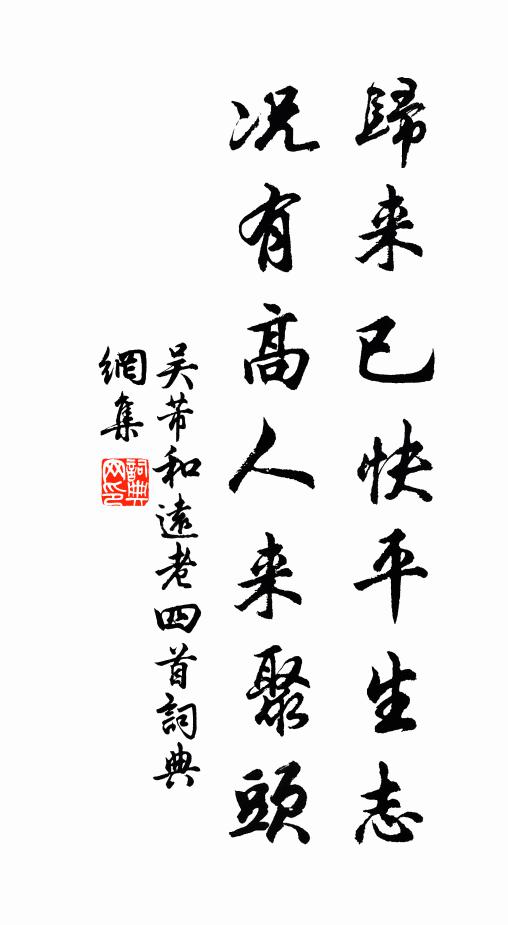 歸来已快平生志
况有高人来聚頭
吴芾和遠老四首詞典
網集
詞典網印